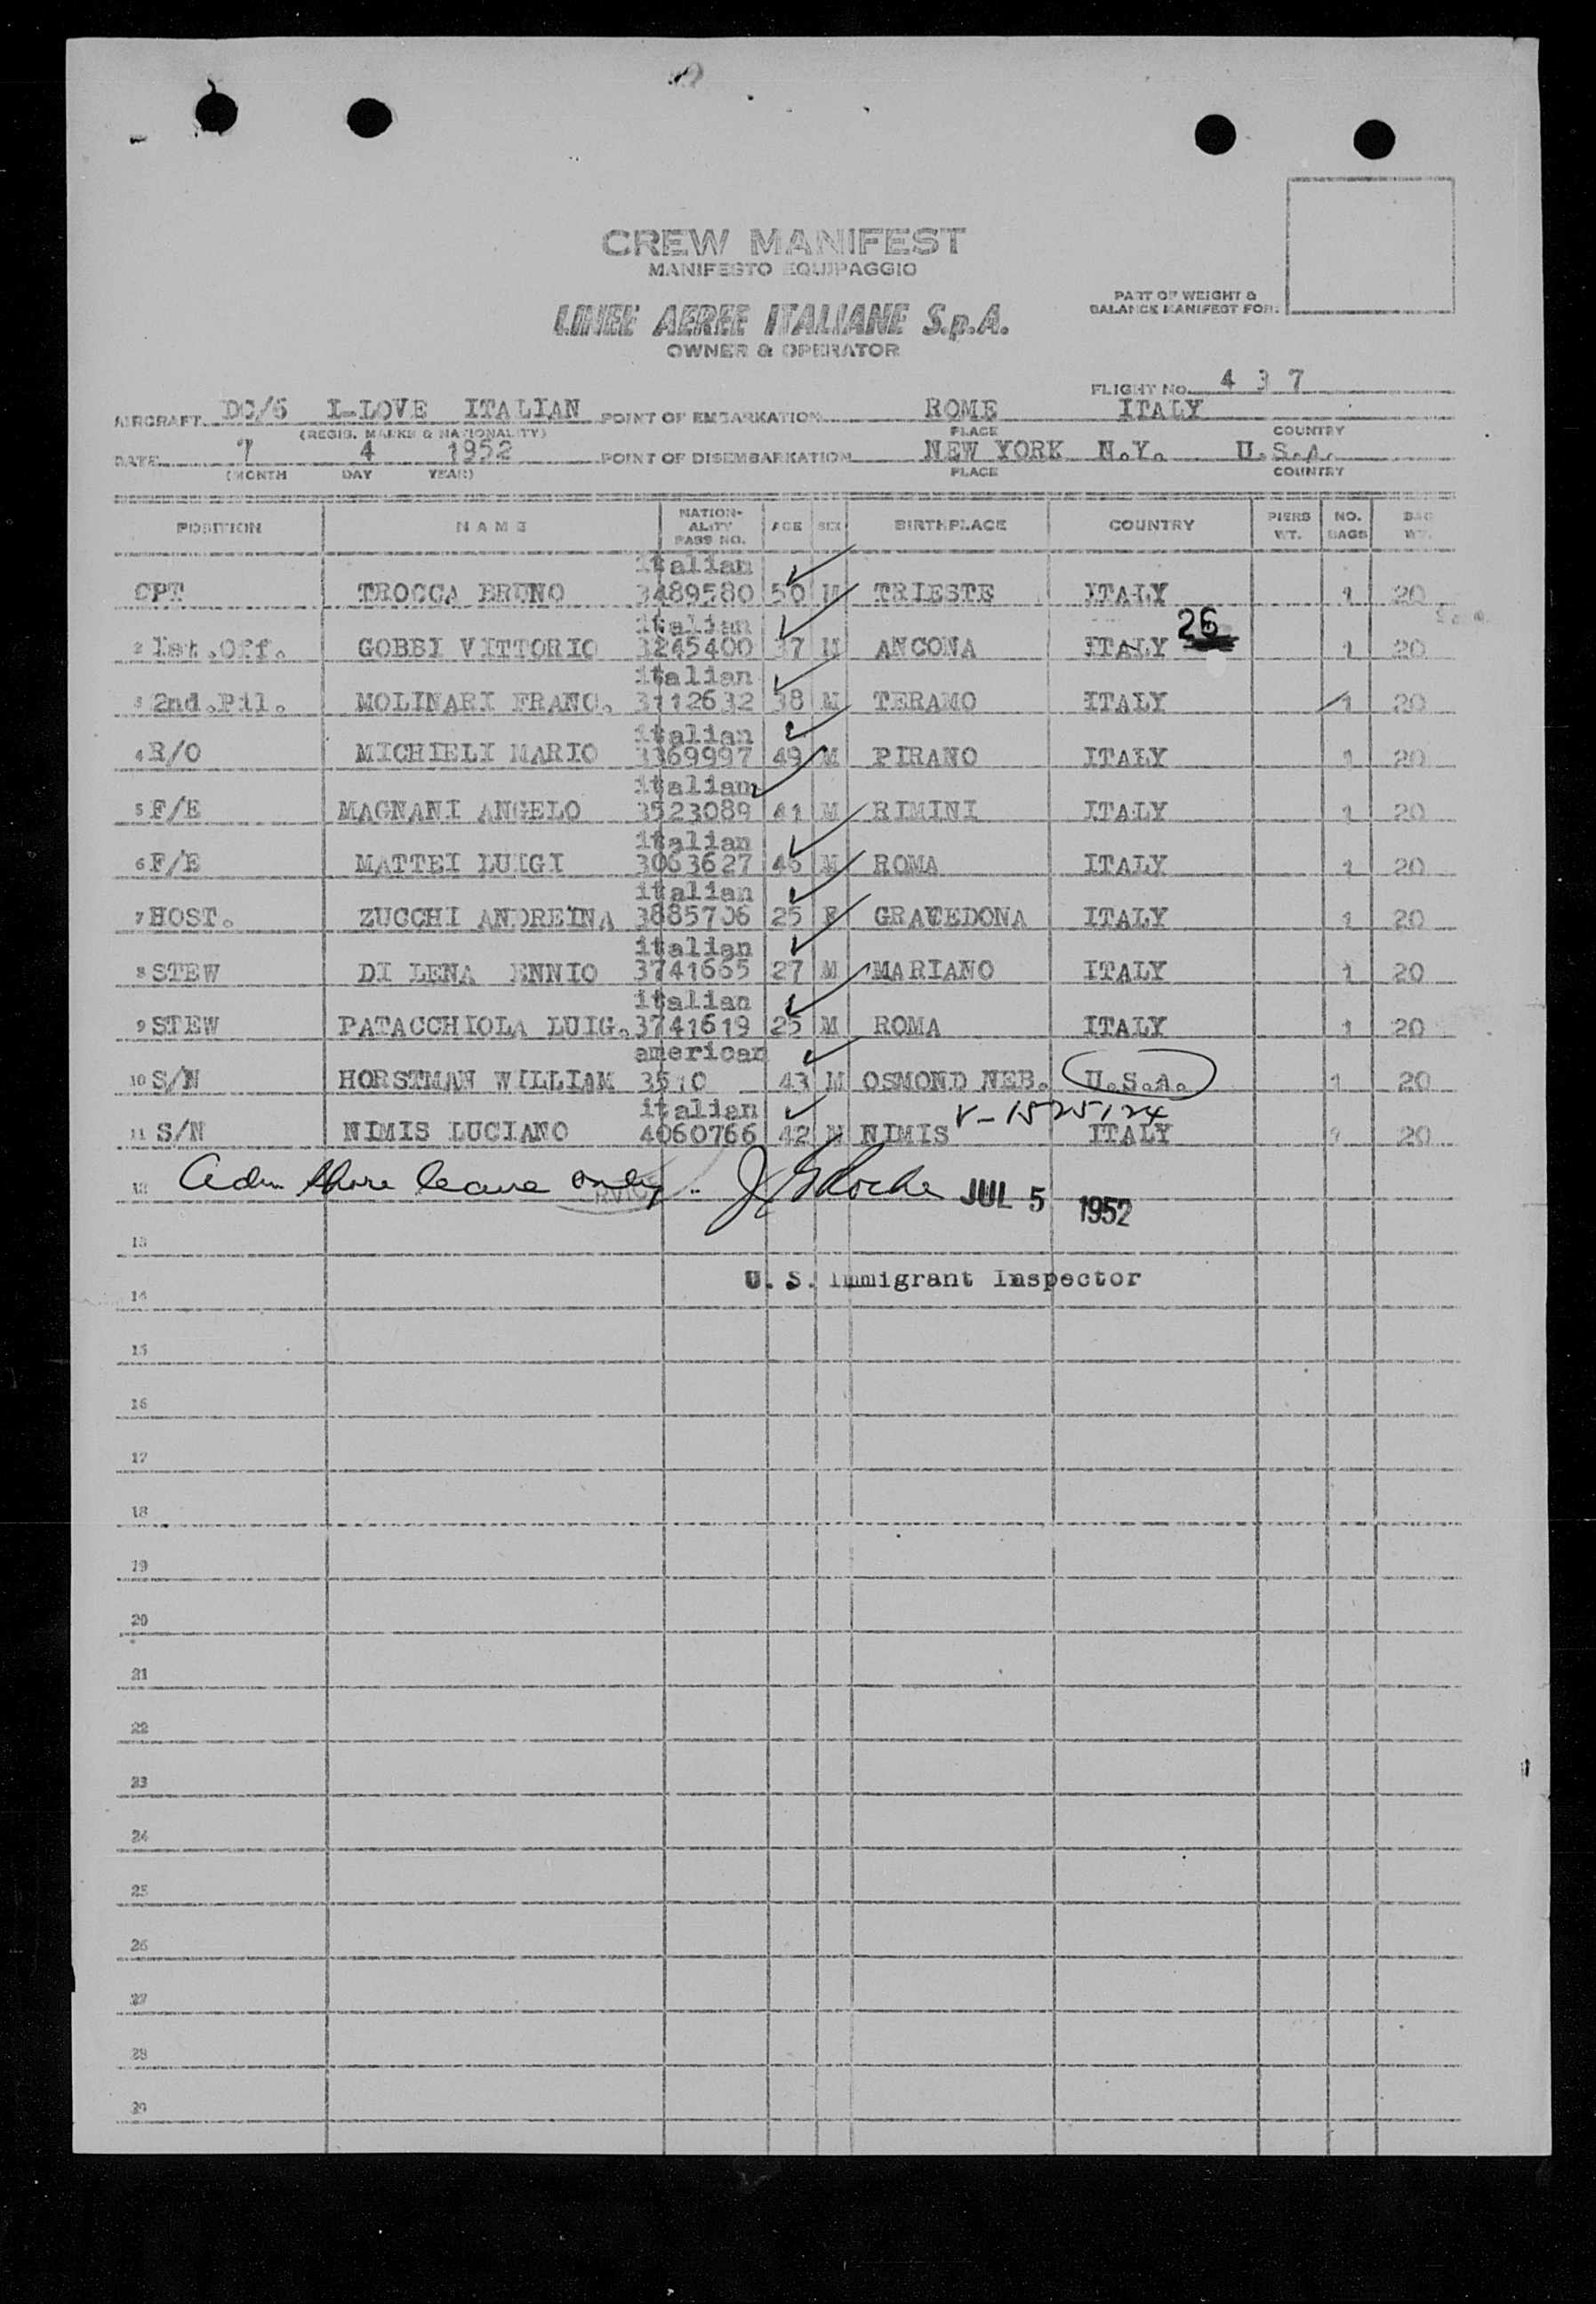 CREW MANIFEST
MANIFESTO EQUIPAGGIO
PART OF WEIGHT &
BALANCE MANIFEST FOR:
LINEE AEREE ITALIANE S.p.A.
OWNER & OPERATOR
FLIGHT No. 4 3 7
AIRCRAFT DC/6 I-LOVE ITALIAN POINT OF EMBARKATION ROME ITALY
(REGIS. MARKS & NATIONALITY) PLACE COUNTRY
DATE 7 4 1952 POINT OF DISEMBARKATION NEW YORK N.Y. U.S.A.
(MONTH DAY YEAR) PLACE COUNTRY
POSITION NAME NATION-ALITY PASS NO. AGE SEX BIRTHPLACE COUNTRY PIERS WT. NO. BAGS BAG WT.
italian
CPT TROCCA BRUNO 3489580 50 M TRIESTE ITALY 1 20
italian 26
2 1st.Off. GOBBI VITTORIO 3245400 37 M ANCONA ITALY 1 20
italian
3 2nd.Pil. MOLINARI FRANC. 3112632 38 M TERAMO ITALY 1 20
italian
4 R/O MICHIELI MARIO 3369997 49 M PIRANO ITALY 1 20
italian
5 F/E MAGNANI ANGELO 3523089 41 M RIMINI ITALY 1 20
italian
6 F/E MATTEI LUIGI 3063627 46 M ROMA ITALY 1 20
italian
7 HOST. ZUCCHI ANDREINA 3885706 25 F GRAVEDONA ITALY 1 20
italian
8 STEW DI LENA ENNIO 3741665 27 M MARIANO ITALY 1 20
italian
9 STEW PATACCHIOLA LUIG. 3741619 25 M ROMA ITALY 1 20
american
10 S/N HORSTMAN WILLIAM 3510 43 M OSMOND NEB. U.S.A. 1 20
italian V-1525124
11 S/N NIMIS LUCIANO 4060766 42 M NIMIS ITALY 1 20
12 Adm shore leave only. J G Roche JUL 5 1952
13
U. S. Immigrant Inspector
14
15
16
17
18
19
20
21
22
23
24
25
26
27
28
29